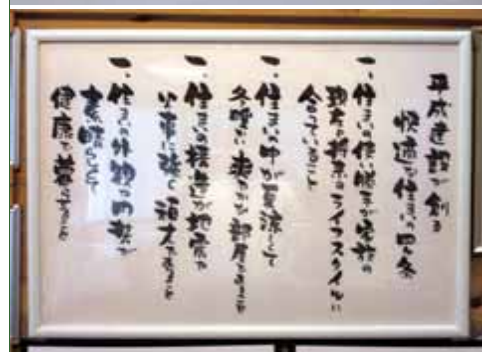 平成建設が創る
快適で住まいの四ヶ条
一、住まいの使い勝手が家族の
現在と将来のライフスタイルに
合っていること
一、住まいの中が夏涼しくて
冬暖かい爽やかな部屋であること
一、住まいの構造が地震や
火事に強く頑丈であること
一、住まいの外観や内装が
素晴らしくて
健康で暮らせること